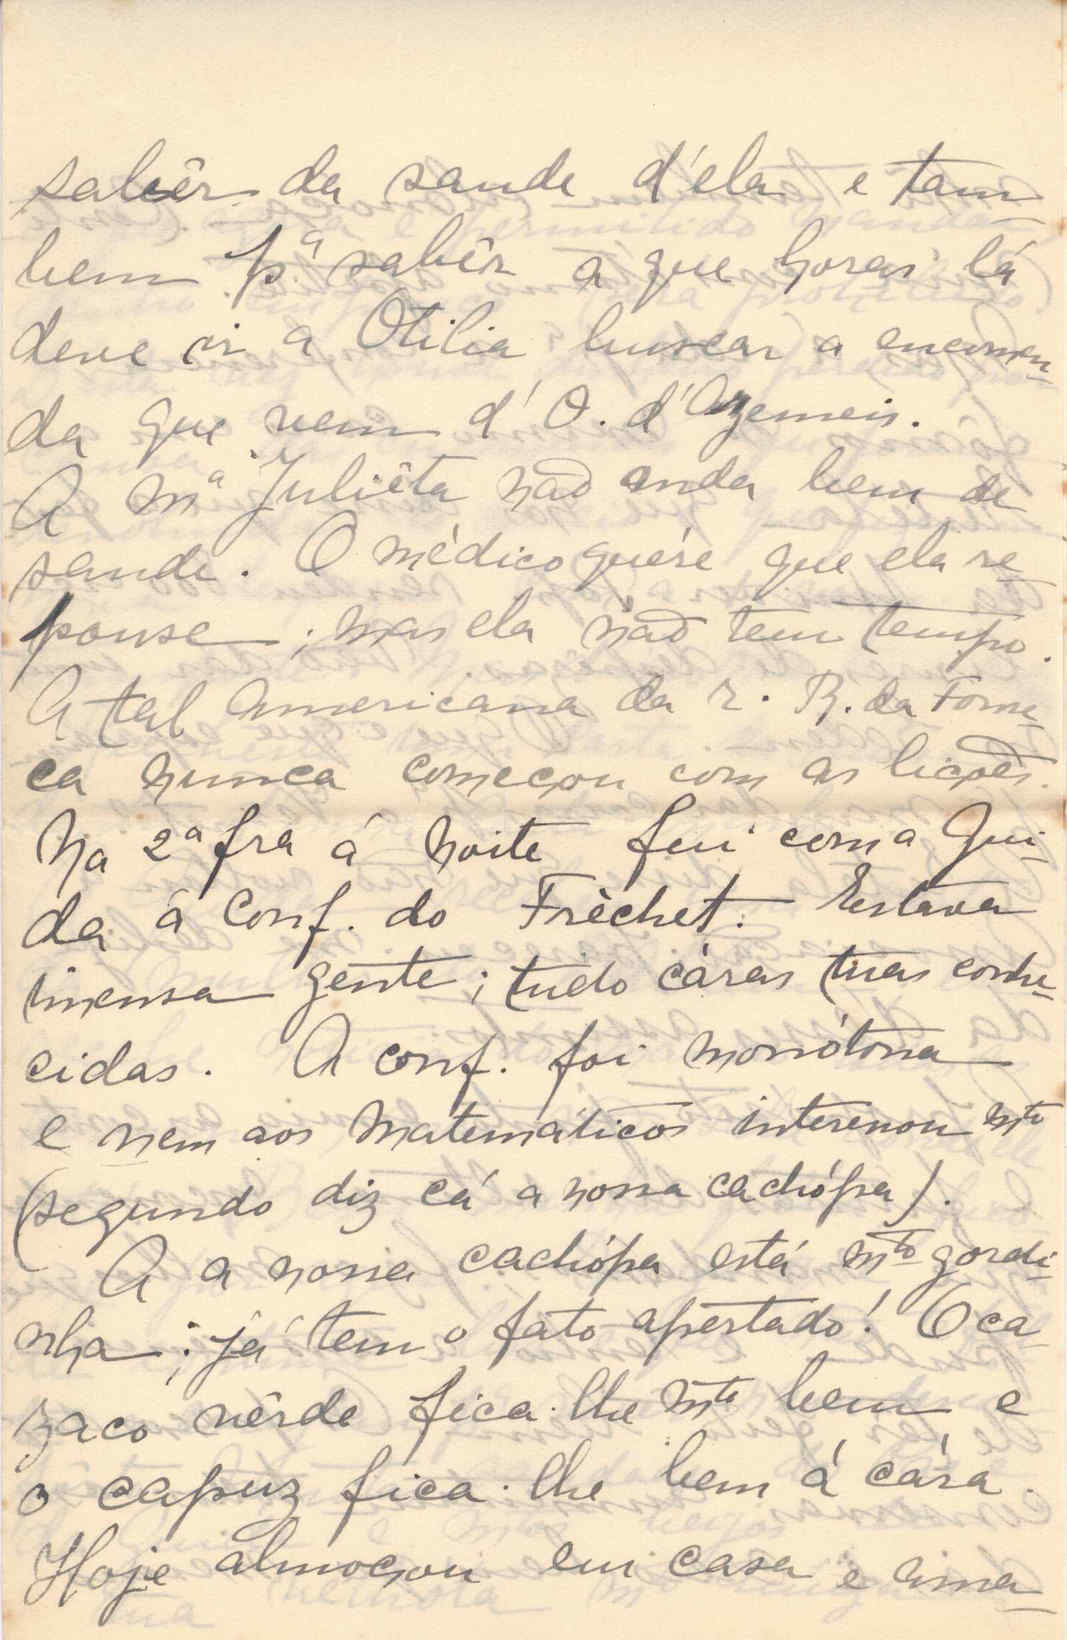 sabêr da saude d'ela e tam
bem pª sabêr a que horas lá
deve ir a Otilia buscar a encomen-
da que vem d'O. d'Azemeis.
A Mª Juliêta não anda bem de
saude. O mèdico quére que ela re
pouse; mas ela não tem tempo.
A tal Americana da r. R. da Fonse-
ca nunca começou com as licções.
Na 2ª fra á noite fui com a Gui-
da á Conf. do Frèchet. Estava
imensa gente; tudo cáras tuas conhe-
cidas. A conf. foi monótona
e nem aos Matemáticos interessou mto
(segundo diz cá a nossa cachópa).
A a nossa cachópa está mto gordi-
nha; já tem o fato apertado! O ca-
zaco vêrde fica-lhe mto bem e
o capuz fica-lhe bem á cára.
Hoje almoçou em casa e ima-